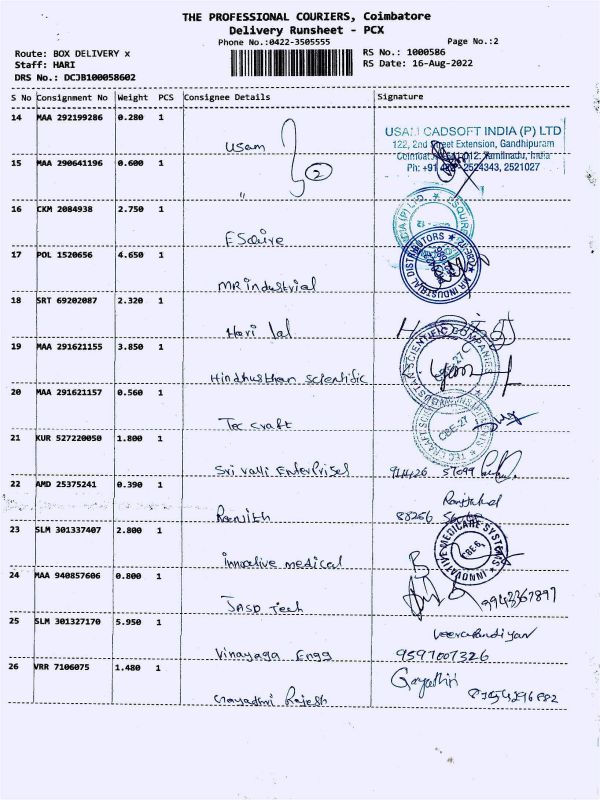 THE PROFESSIONAL COURIERS, Coimbatore
Delivery Runsheet - PCX
Phone No.:0422-3505555 Page No.:2
Route: BOX DELIVERY x RS No.: 1000586
Staff: HARI RS Date: 16-Aug-2022
DRS No.: DCJB100058602
S No Consignment No Weight PCS Consignee Details Signature
14 MAA 292199286 0.280 1 Usam
USAM CADSOFT INDIA (P) LTD
122, 2nd Street Extension, Gandhipuram
Tamilnadu, India
2524343, 2521027
15 MAA 290641196 0.600 1 " 2
16 CKM 2084938 2.750 1 ESquire
17 POL 1520656 4.650 1 MR industrial
MR INDUSTRIAL DISTRIBUTORS
18 SRT 69202087 2.320 1 Hari lal
19 MAA 291621155 3.850 1 Hindhusthan Scientific
SCIENTIFIC COMPANY
20 MAA 291621157 0.560 1 Tec craft
CBE-27
21 KUR 527220050 1.800 1 Sri valli Enterprises
22 AMD 25375241 0.390 1 Ranjith
88256
23 SLM 301337407 2.800 1 innovative medical
INNOVATIVE MEDICARE SYSTEMS
24 MAA 940857606 0.800 1 JASP Tech
9943367897
25 SLM 301327170 5.950 1 Vinayaga Engg
Veerapandiyan
9597007326
26 VRR 7106075 1.480 1 Gayathri Rajesh
Gayathiri